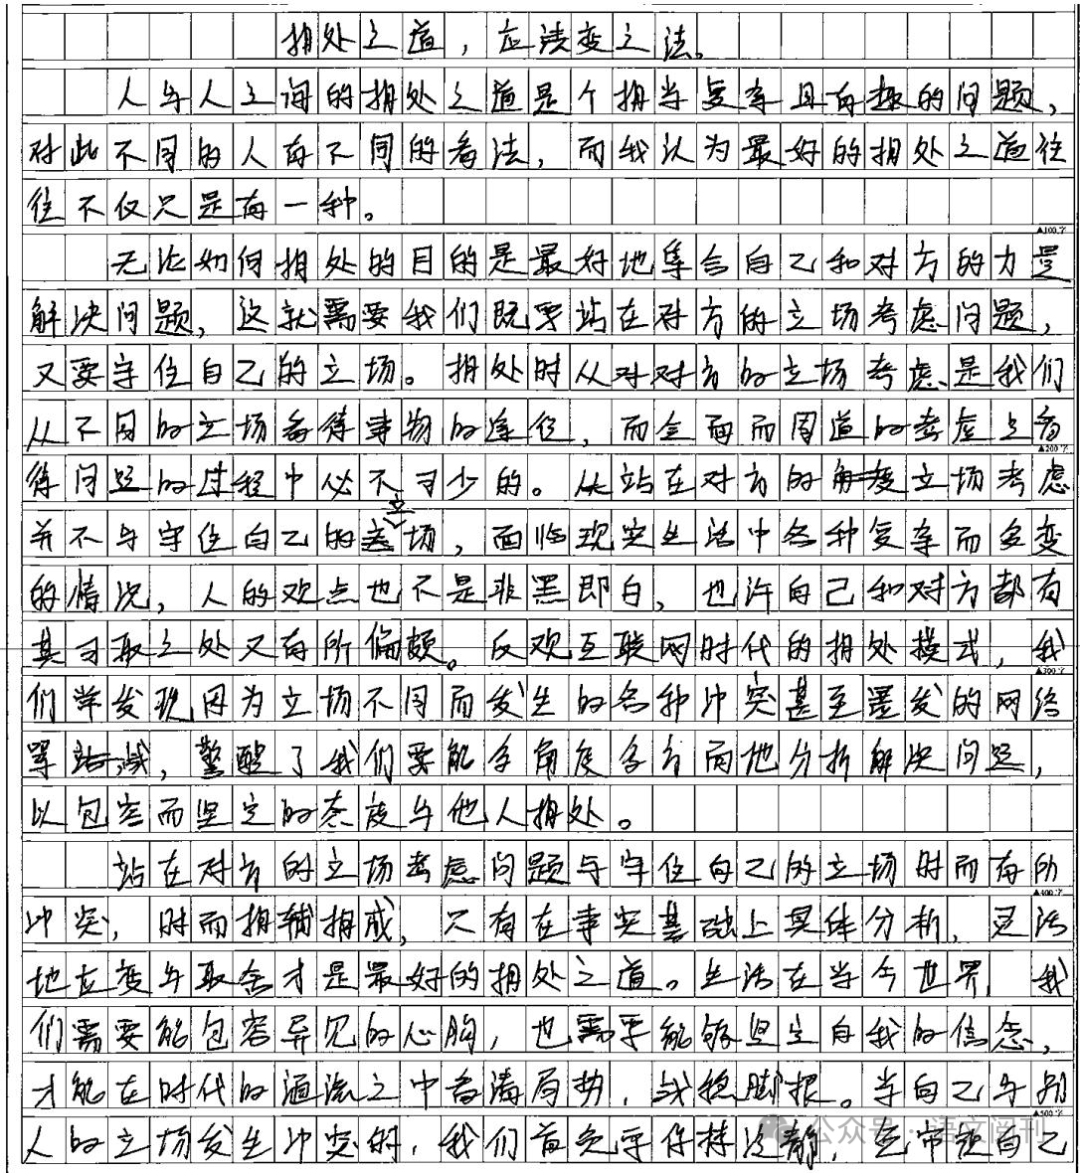 相处之道，应读变之法。
人与人之间的相处之道是个相当复杂且有趣的问题，
对此不同的人有不同的看法，而我认为最好的相处之道往
往不仅只是有一种。
▲100字
无论如何相处的目的是最好地集合自己和对方的力量
解决问题，这就需要我们既要站在对方的立场考虑问题，
又要守住自己的立场。相处时从对对方的立场考虑是我们
从不同的立场看待事物的途径，而全面而周道的考虑上看
▲200字
待问题的过程中必不可少的。从站在对方的立场考虑
并不与守住自己的立场，面临现实生活中各种复杂而多变
的情况，人的观点也不是非黑即白，也许自己和对方都有
其可取之处又有所偏颇。反观互联网时代的相处模式，我
▲300字
们常发现因为立场不同而发生的各种冲突甚至爆发的网络
骂战，警醒了我们要能多角度多方面地分析解决问题，
以包容而坚定的态度与他人相处。
站在对方的立场考虑问题与守住自己的立场时而有所
▲400字
冲突，时而相辅相成，只有在事实基础上具体分析，灵活
地应变与取舍才是最好的相处之道。生活在当今世界，我
们需要能包容异见的心胸，也需要能够坚定自我的信念，
才能在时代的通流之中看清局势，站稳脚根。当自己与别
▲500字
人的立场发生冲突时，我们首先守保持冷静，先审视自己
公众号·语文阅刊